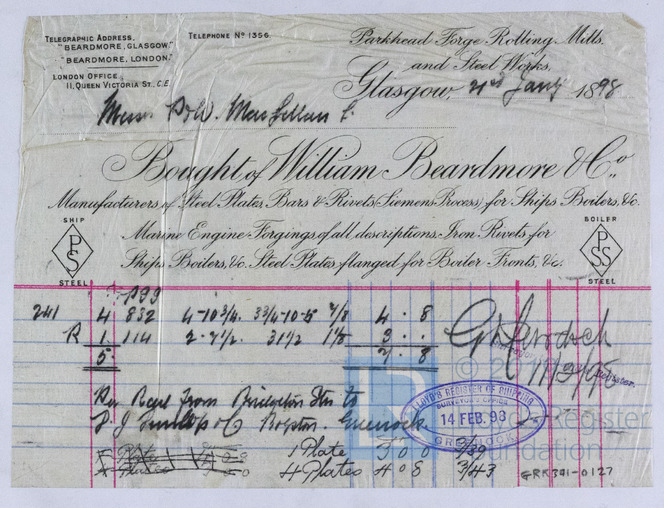 TELEGRAPHIC ADDRESS.
"BEARDMORE, GLASGOW."
"BEARDMORE, LONDON."
LONDON OFFICE
11, QUEEN VICTORIA ST., E.C.
TELEPHONE No 1356.
Parkhead Forge Rolling Mills.
and Steel Works,
Glasgow, 21st Jany 1898
Messrs P & W. MacLellan
Bought of William Beardmore & Co.,
Manufacturers of Steel Plates, Bars & Rivets (Siemens Process) for Ships Boilers, &c.
Marine Engine Forgings of all descriptions. Iron Rivets for
Ships Boilers, &c. Steel Plates flanged for Boiler Fronts, &c.
SHIP
PS
STEEL
BOILER
PSS
STEEL
241 4 832 4-10 3/4 7/8 4 . 8
R 1 114 2-7 1/2 31 1/2 1 1/8 3 . .
5 7 . 8
Per Rail from Bridgeton Stn to
D. J. Dunlop & Co Greenock
LLOYD'S REGISTER OF SHIPPING
SURVEYOR'S OFFICE
14 FEB. 98
GREENOCK
1 Plate 3 0 0
4 Plates 4 0 8
GRK391-0127
Register
Foundation